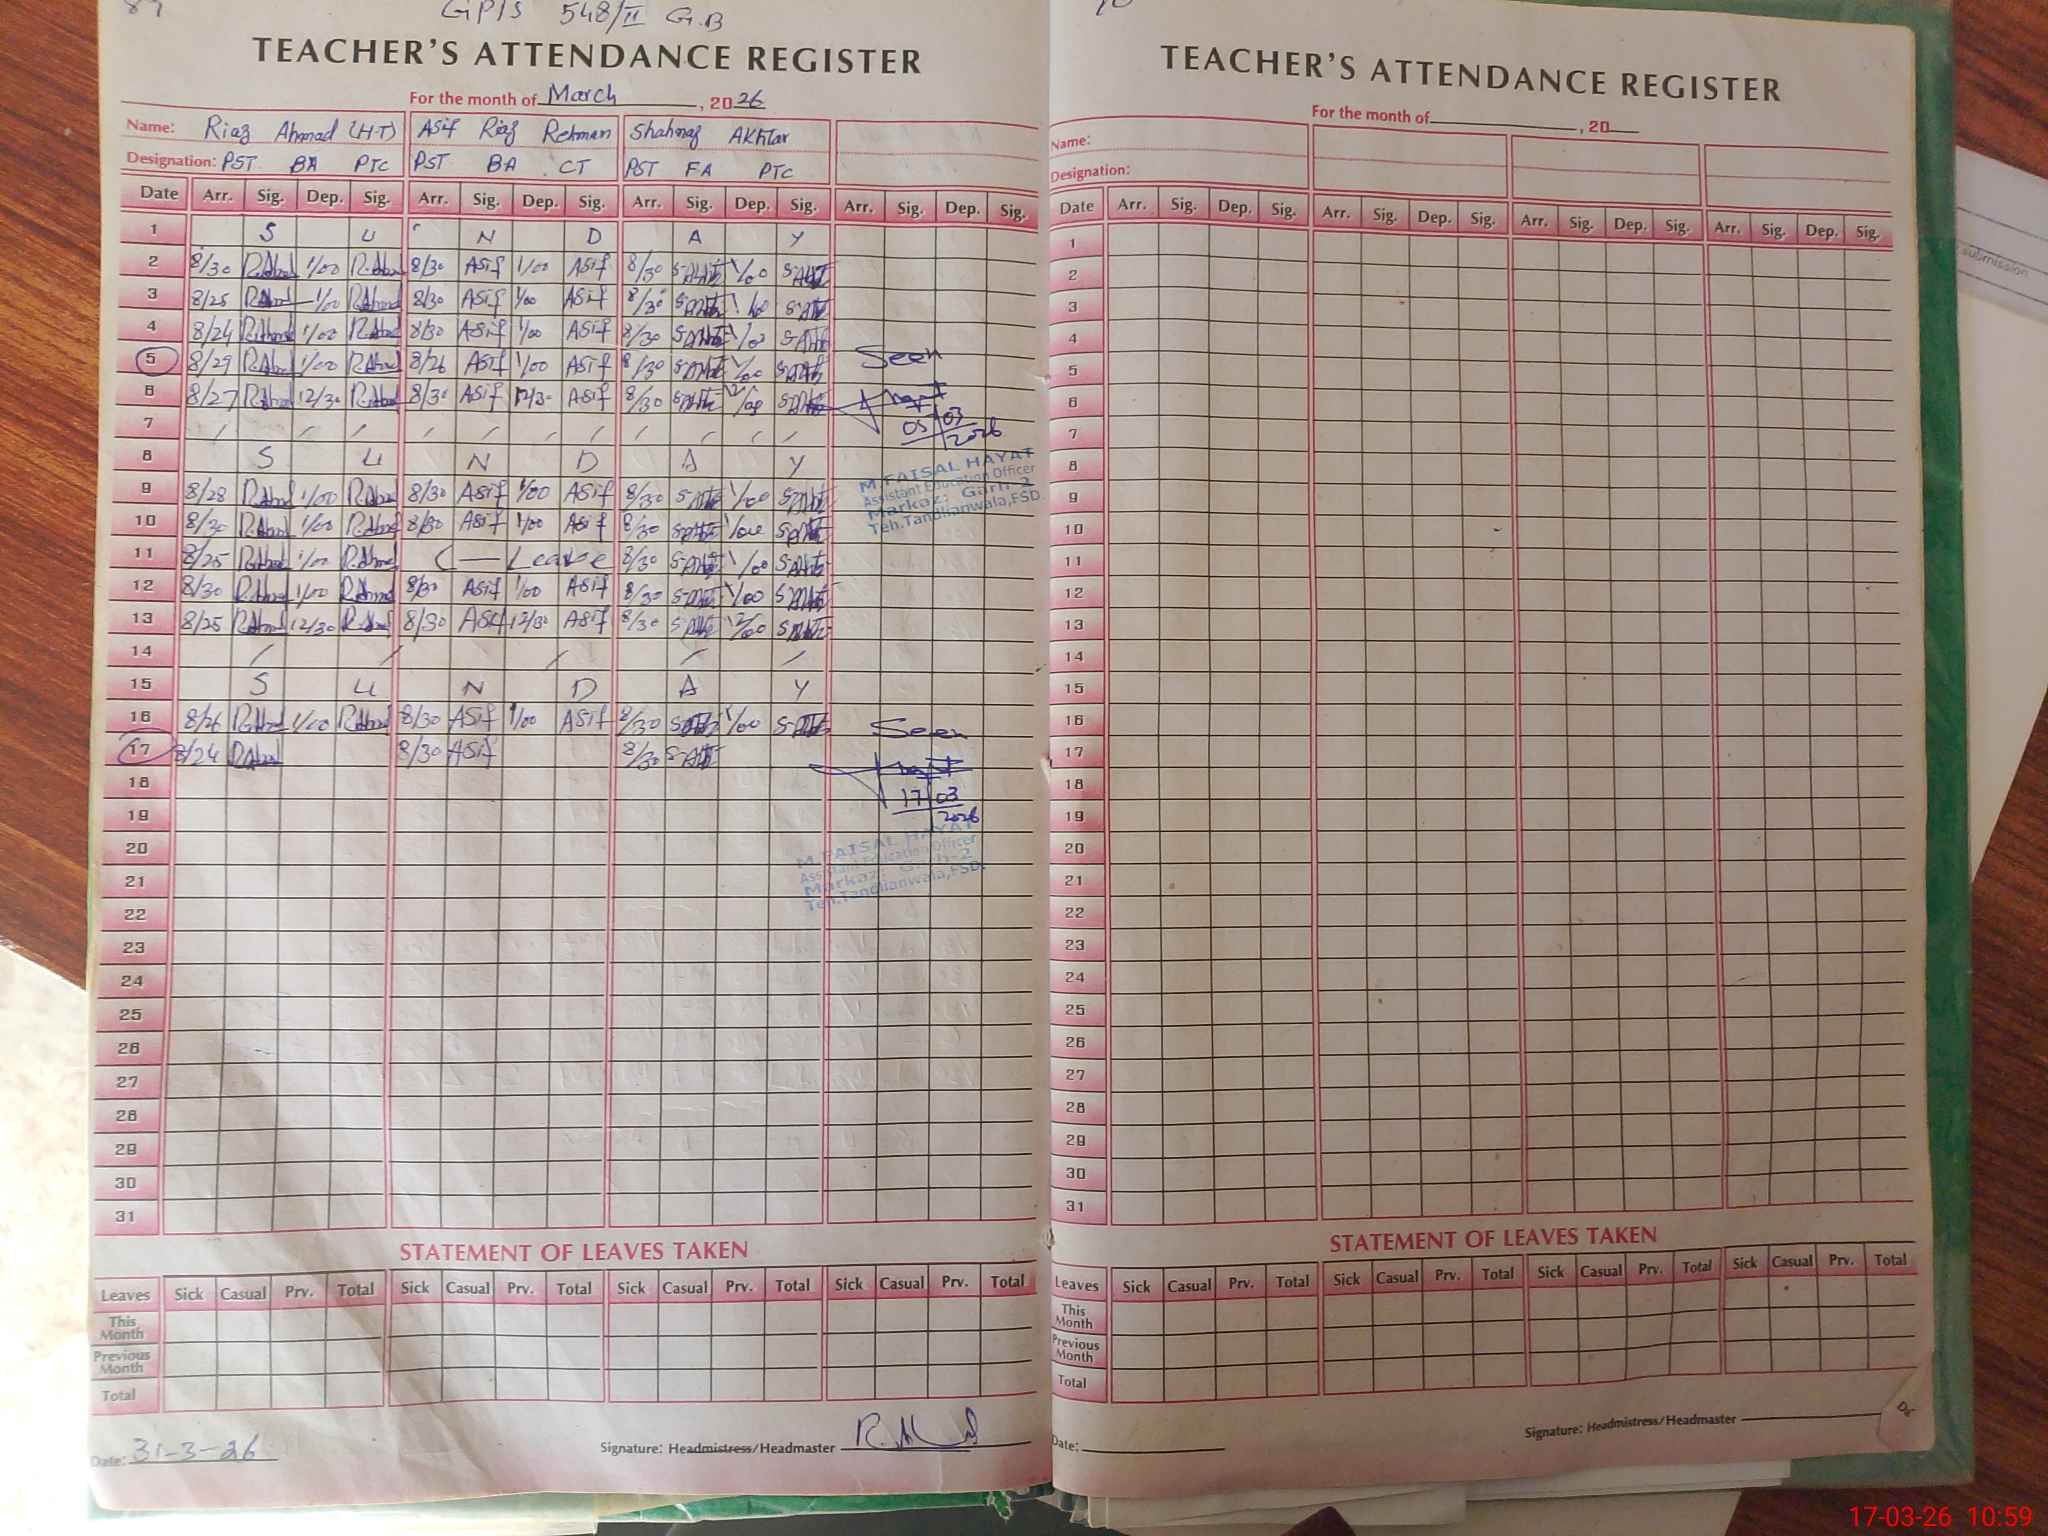 GP/S 548/II G.B
TEACHER'S ATTENDANCE REGISTER
For the month of March, 2026
Name: Riaz Ahmad (H.T) Asif Riaz Rehman Shahnaz Akhtar
Designation: PST BA PTC PST BA CT PST FA PTC
Date Arr. Sig. Dep. Sig. Arr. Sig. Dep. Sig. Arr. Sig. Dep. Sig. Arr. Sig. Dep. Sig.
1 S U N D A Y
2 8/30 1/00 8/30 Asif 1/00 Asif 8/30 1/00
3 8/25 1/00 8/30 Asif 1/00 Asif 8/30 1/00
4 8/24 1/00 8/30 Asif 1/00 Asif 8/30 1/00
5 8/29 1/00 8/26 Asif 1/00 Asif 8/30 1/00 Seen
6 8/27 12/30 8/30 Asif 12/30 Asif 8/30
7 05/03/2026
8 S U N D A Y
M. FAISAL HAYAT
Assistant Education Officer
Markaz: Garh-2
Teh. Tandlianwala, FSD.
9 8/28 1/00 8/30 Asif 1/00 Asif 8/30 1/00
10 8/30 1/00 8/30 Asif 1/00 Asif 8/30 1/00
11 8/25 1/00 C — Leave 8/30 1/00
12 8/30 1/00 8/30 Asif 1/00 Asif 8/30 1/00
13 8/25 12/30 8/30 Asif 12/30 Asif 8/30
14
15 S U N D A Y
16 8/26 1/00 8/30 Asif 1/00 Asif 8/30 1/00 Seen
17 8/24 8/30 Asif 8/30
18 17/03/2026
19
M. FAISAL HAYAT
Assistant Education Officer
Markaz: Garh-2
Teh. Tandlianwala, FSD.
20
21
22
23
24
25
26
27
28
29
30
31
STATEMENT OF LEAVES TAKEN
Leaves Sick Casual Prv. Total Sick Casual Prv. Total Sick Casual Prv. Total Sick Casual Prv. Total
This Month
Previous Month
Total
Date: 31-3-26 Signature: Headmistress/Headmaster
TEACHER'S ATTENDANCE REGISTER
For the month of, 20
Name:
Designation:
Date Arr. Sig. Dep. Sig. Arr. Sig. Dep. Sig. Arr. Sig. Dep. Sig. Arr. Sig. Dep. Sig.
1
2
3
4
5
6
7
8
9
10
11
12
13
14
15
16
17
18
19
20
21
22
23
24
25
26
27
28
29
30
31
STATEMENT OF LEAVES TAKEN
Leaves Sick Casual Prv. Total Sick Casual Prv. Total Sick Casual Prv. Total Sick Casual Prv. Total
This Month
Previous Month
Total
Date: Signature: Headmistress/Headmaster
submission
17-03-26 10:59